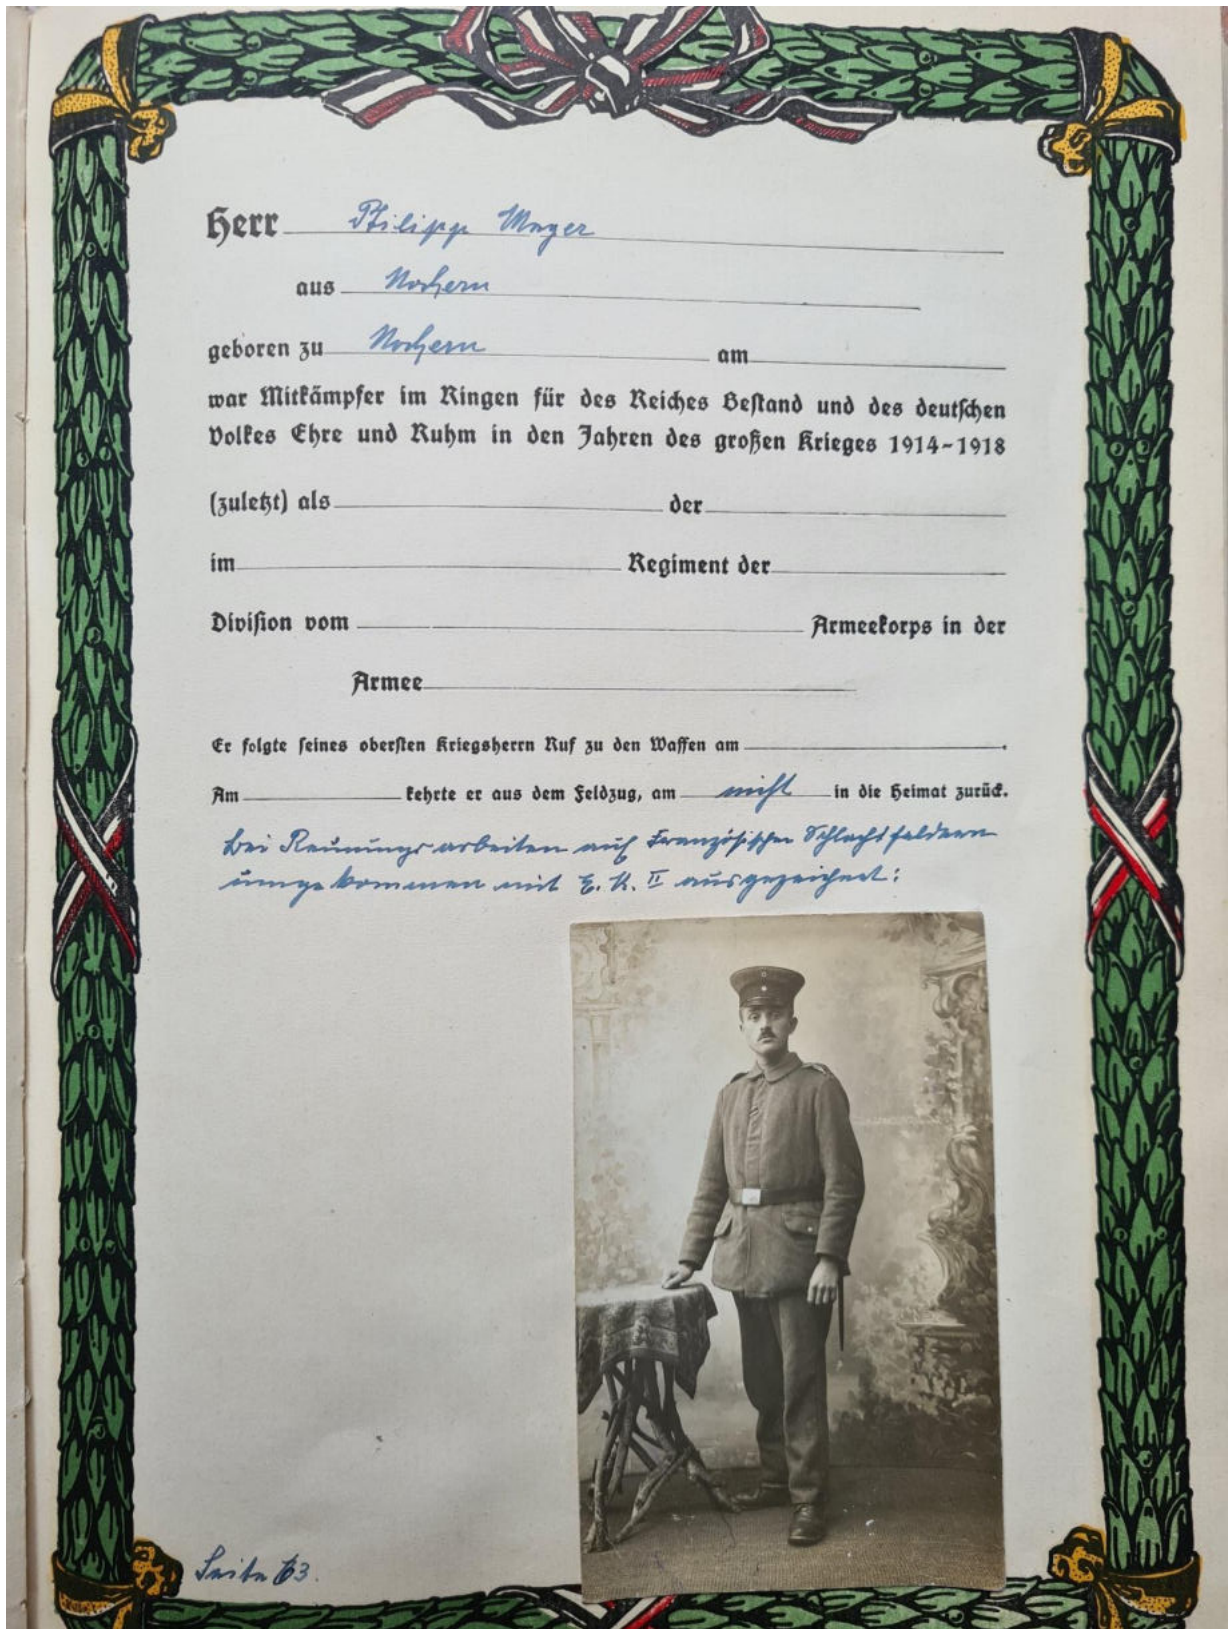 Herr Philipp Mayer
aus Nochern
geboren zu Nochern am
war Mitkämpfer im Ringen für des Reiches Bestand und des deutschen
Volkes Ehre und Ruhm in den Jahren des großen Krieges 1914-1918
(zuletzt) als der
im Regiment der
Division vom Armeekorps in der
Armee
Er folgte seines obersten Kriegsherrn Ruf zu den Waffen am .
Am kehrte er aus dem Feldzug, am nicht in die Heimat zurück.
bei Reumungsarbeiten auf Französischen Schlachtfeldern
umgekommen mit E. K. II ausgezeichnet:
Seite 63.